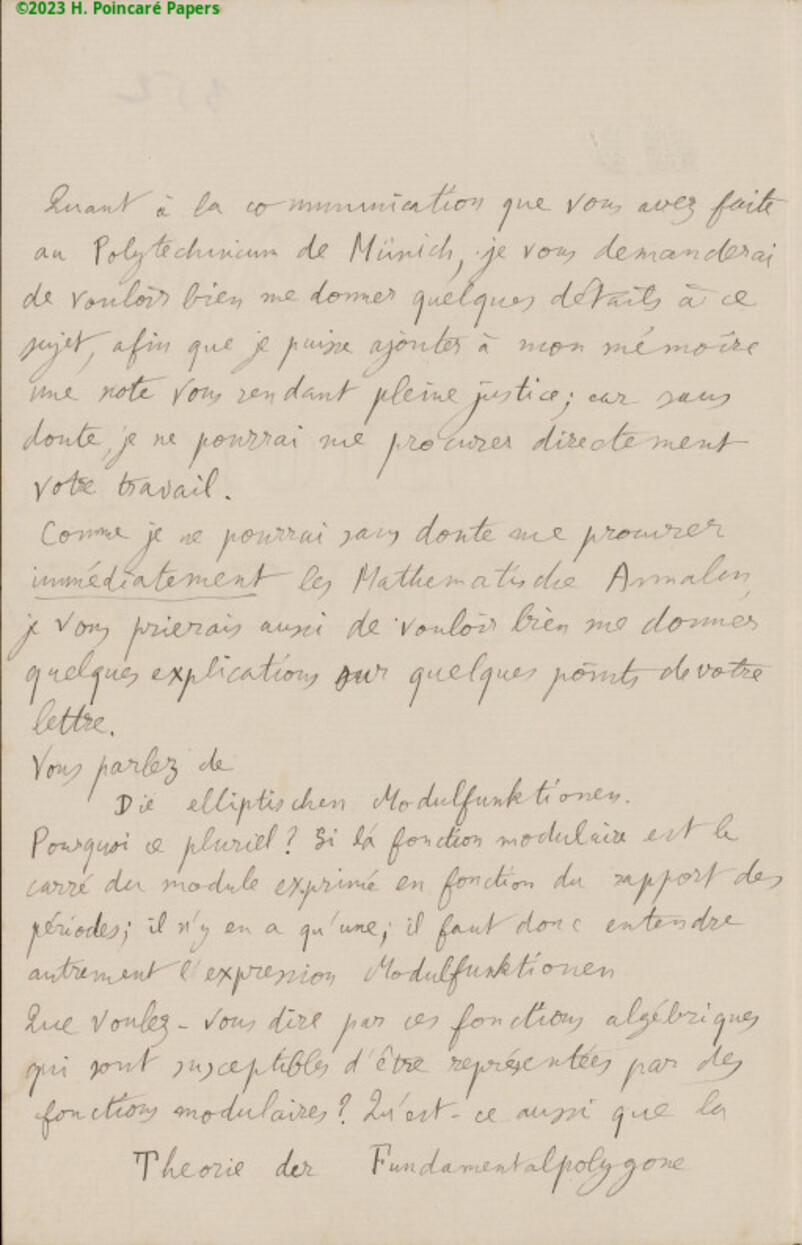 ©2023 H. Poincaré Papers
Quant à la communication que vous avez faite
au Polytechnicum de Münich, je vous demanderai
de vouloir bien me donner quelques détails à ce
sujet, afin que je puisse ajouter à mon mémoire
une note vous rendant pleine justice; car sans
doute, je ne pourrai me procurer directement
votre travail.
Comme je ne pourrai sans doute me procurer
immédiatement les Mathematische Annalen,
je vous prierais aussi de vouloir bien me donner
quelques explications sur quelques points de votre
lettre.
Vous parlez de
Die elliptischen Modulfunktionen.
Pourquoi ce pluriel? Si la fonction modulaire est le
carré du module exprimé en fonction du rapport des
périodes; il n'y en a qu'une; il faut donc entendre
autrement l'expression Modulfunktionen
Que voulez-vous dire par ces fonctions algébriques
qui sont susceptibles d'être représentées par des
fonctions modulaires? Qu'est-ce aussi que la
Theorie der Fundamentalpolygone